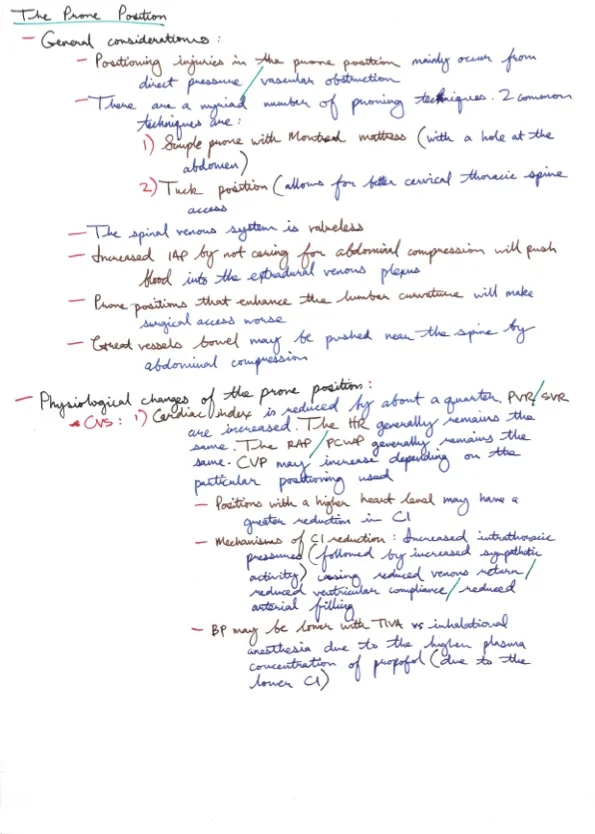 The Prone Position
- General considerations:
- Positioning injuries in the prone position mainly occur from
direct pressure/vascular obstruction
- There are a myriad number of proning techniques. 2 common
techniques are:
1) Simple prone with Montreal mattress (with a hole at the
abdomen)
2) Tuck position (allows for better cervical thoracic spine
access
- The spinal venous system is valveless
- Increased IAP by not caring for abdominal compression will push
blood into the extradural venous plexus
- Prone positions that enhance the lumbar curvature will make
surgical access worse
- Great vessels bowel may be pushed near the spine by
abdominal compression
- Physiological changes of the prone position:
CVS: 1) Cardiac index is reduced by about a quarter. PVR/SVR
are increased. The HR generally remains the
same. The RAP/PCWP generally remains the
same. CVP may increase depending on the
particular positioning used
- Positions with a higher heart level may have a
greater reduction in CI
- Mechanisms of CI reduction: Increased intrathoracic
pressures (followed by increased sympathetic
activity) causing reduced venous return/
reduced ventricular compliance/reduced
arterial filling
- BP may be lower with TIVA vs inhalational
anesthesia due to the higher plasma
concentration of propofol (due to the
lower CI)